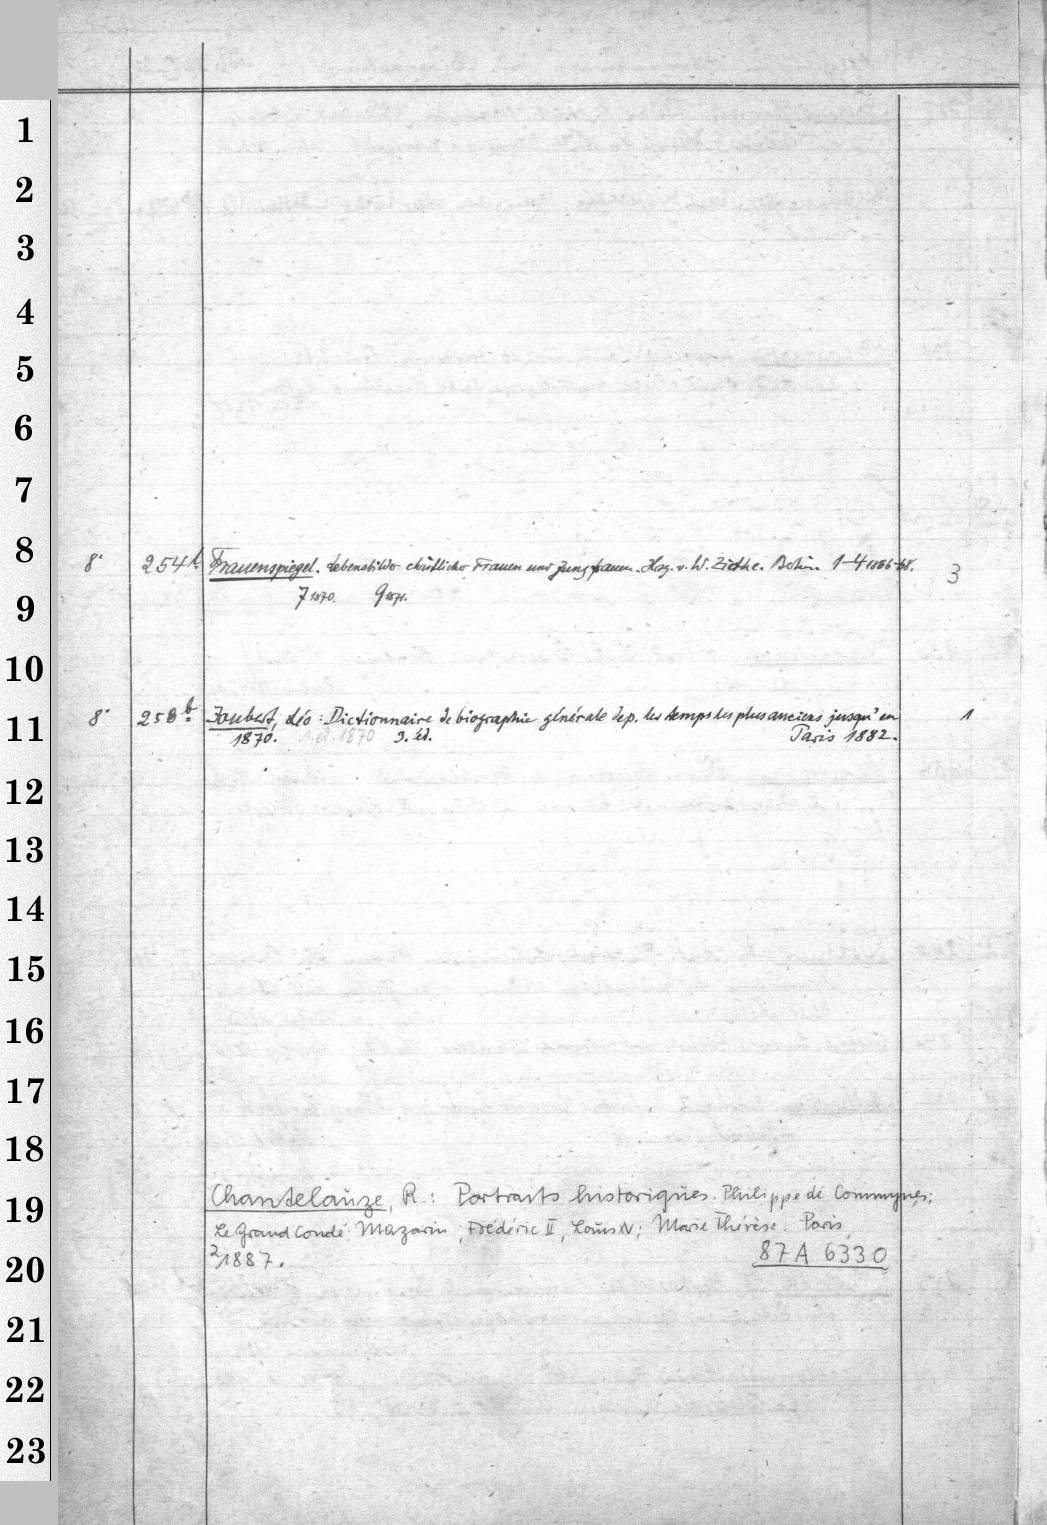 1
2
3
4
5
6
7
8
8° 254b Frauenspiegel. Lebensbilder christlicher Frauen und Jungfrauen. Hsg. v. W. Ziethe. Berlin. 1-4 1866-68. 3
7 1870. 9 1871.
9
10
11
8° 258b Joubert, Léo: Dictionnaire de biographie générale dep. les temps les plus anciens jusqu'en 1
1870. 1. éd. 1870 3. éd. Paris 1882.
12
13
14
15
16
17
18
19
Chantelauze, R.: Portraits historiques. Philippe de Commynes;
Le Grand Condé; Mazarin; Frédéric II, Louis XV; Marie Thérèse. Paris
²1887. 87 A 6330
20
21
22
23